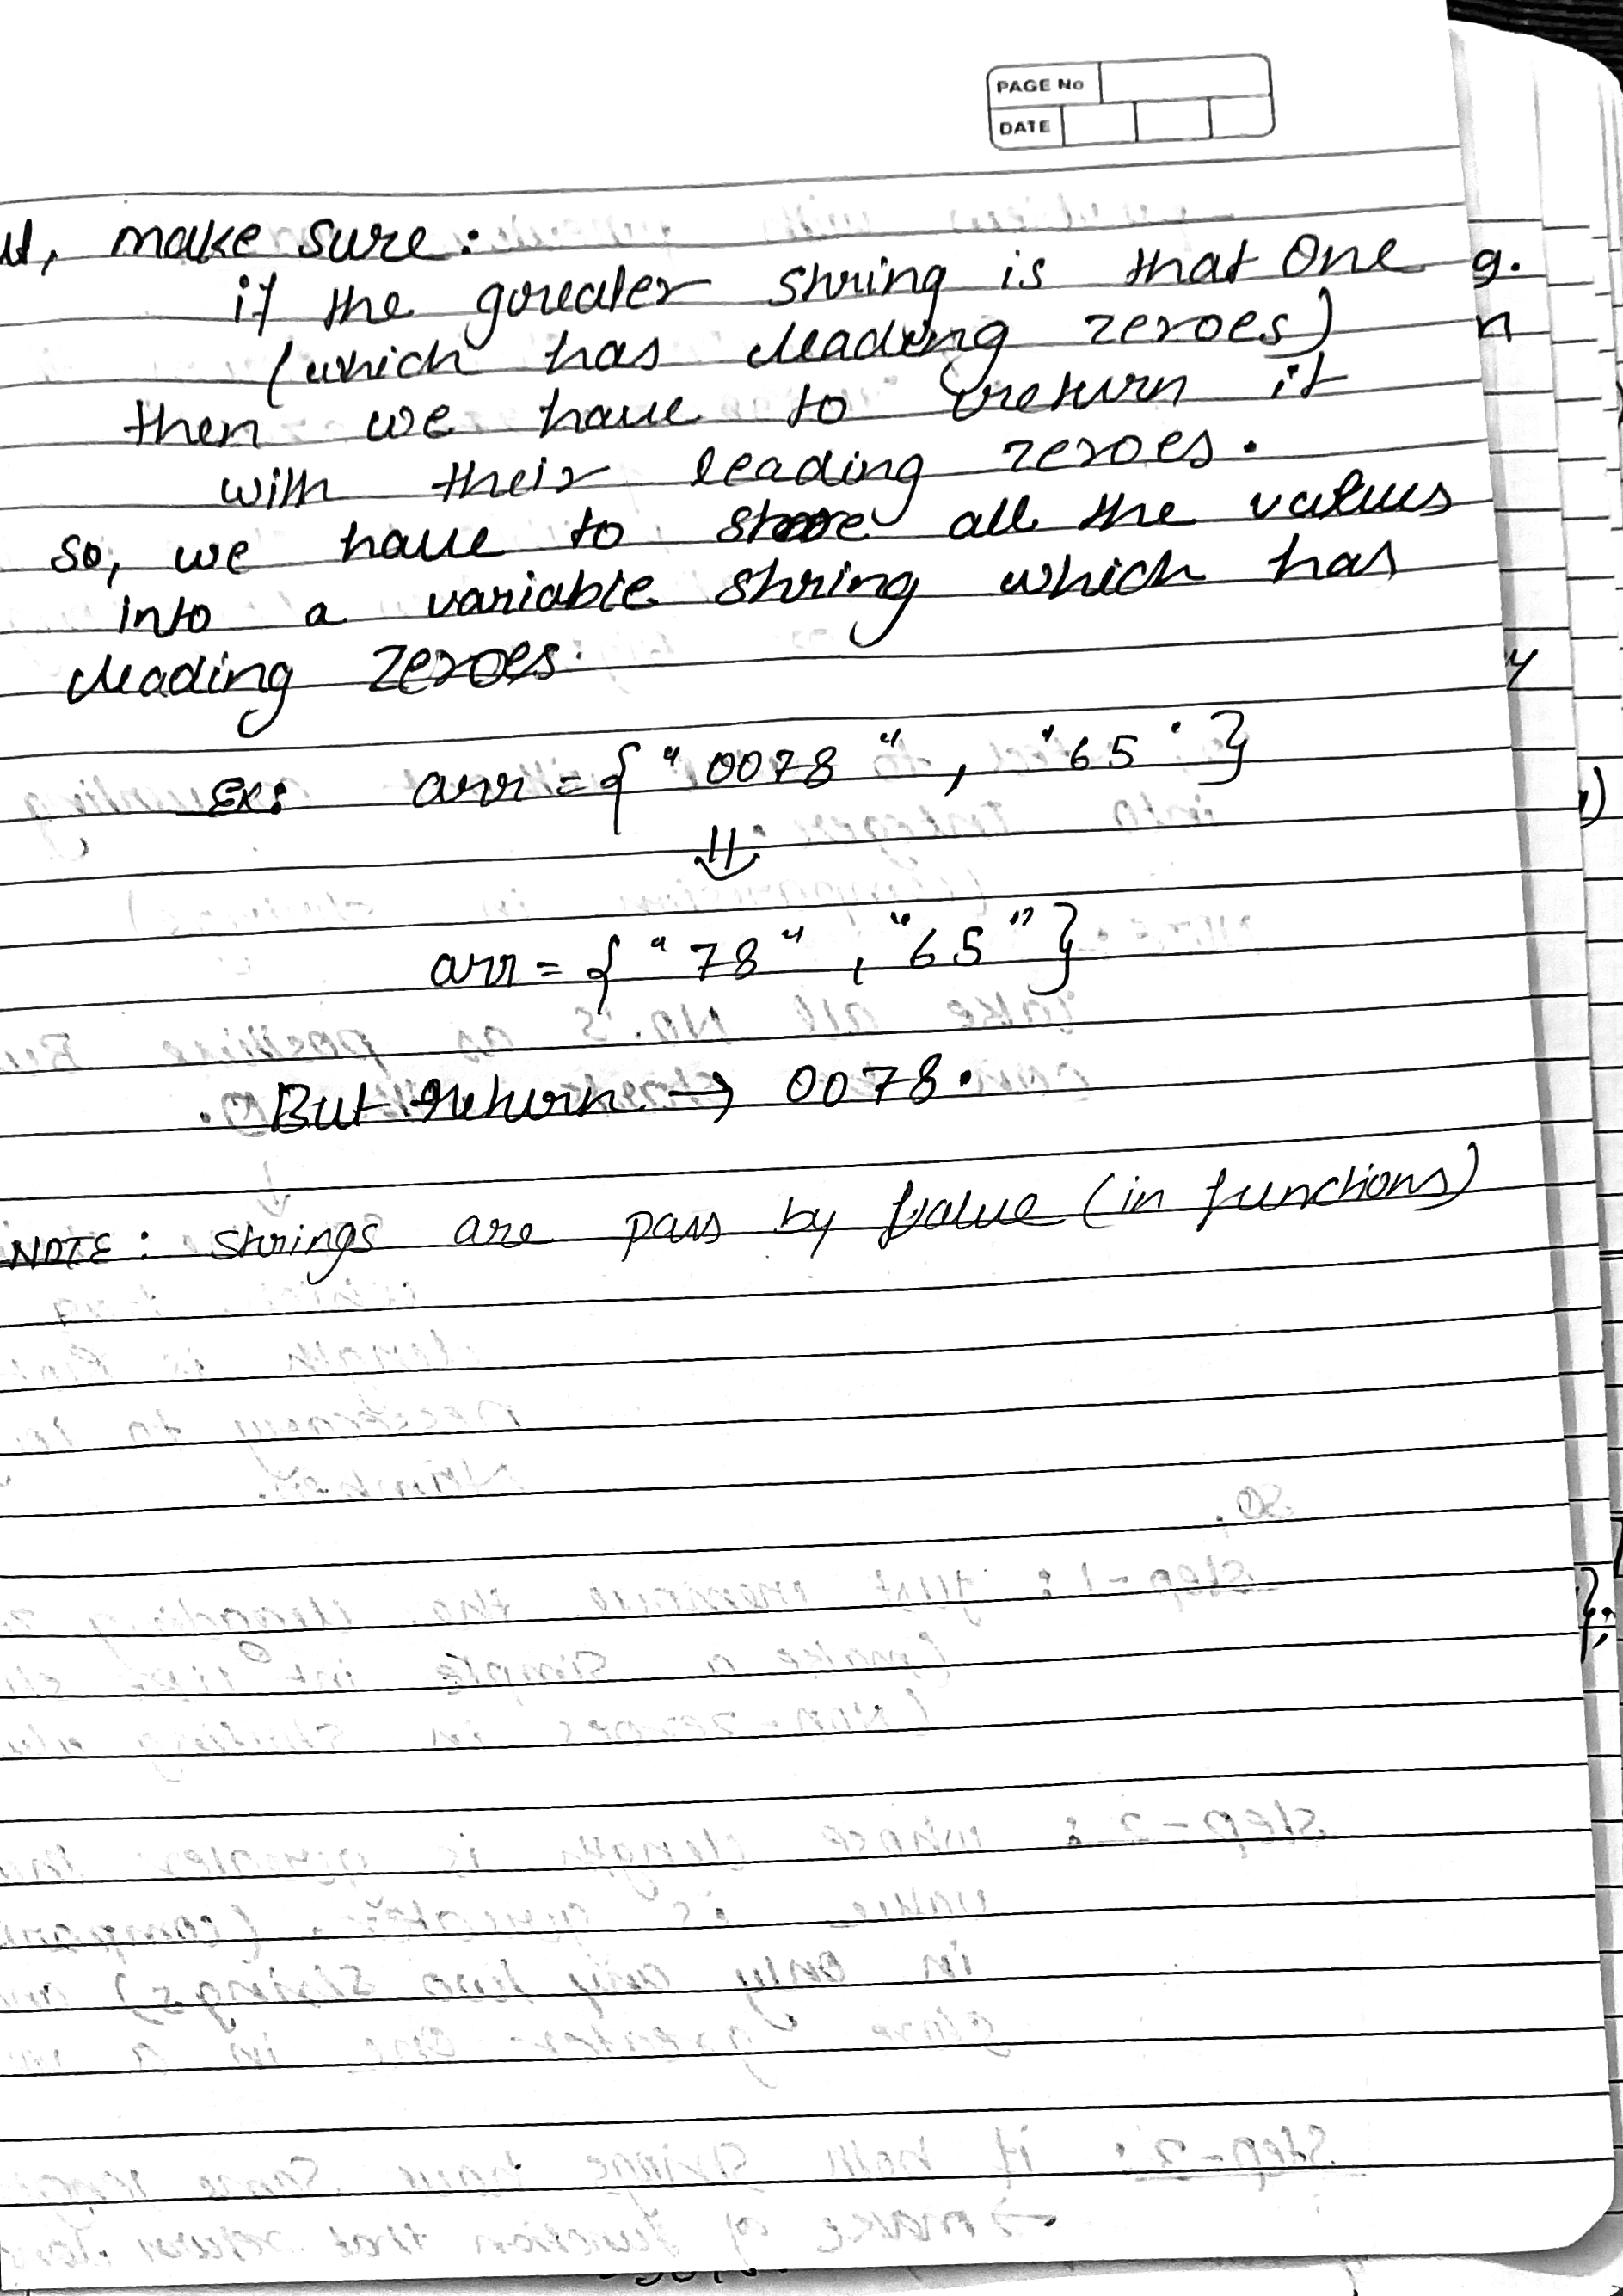 PAGE No
DATE
ut, make sure:
if the greater string is that one
(which has leading zeroes)
then we have to return it
with their leading zeroes.
So, we have to store all the values
into a variable string which has
leading zeroes.
Ex: arr = { "0078", "65" }
⇓
arr = { "78", "65" }
But return → 0078.
NOTE: Strings are pass by value (in functions)
g.
n
y
)
};